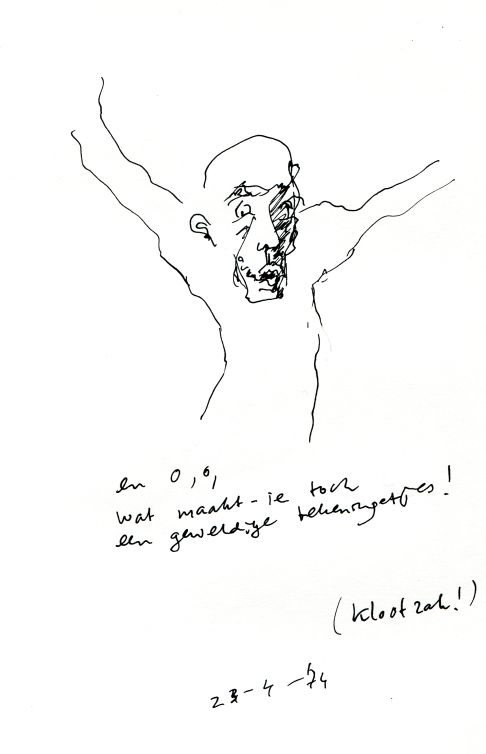 en o, o,
wat maakt-ie toch
een geweldige tekeningetjes!
(klootzak!)
23-4-74